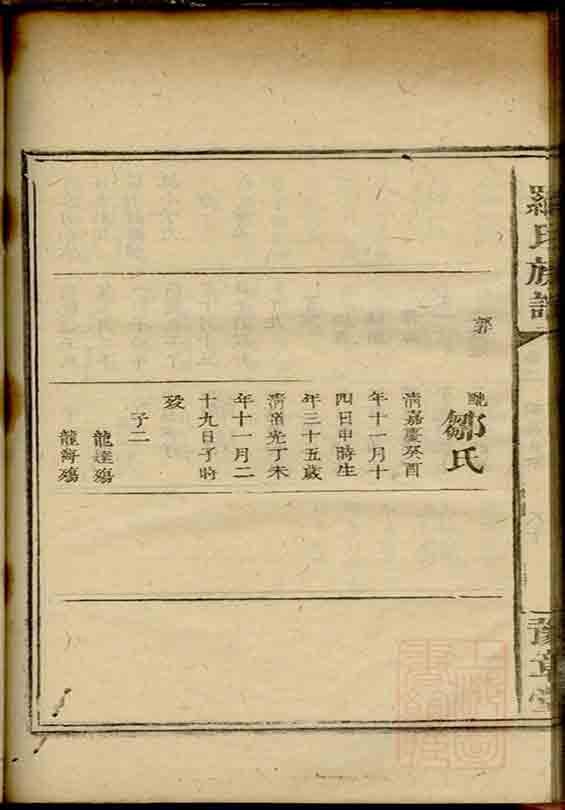 羅氏族譜
豫章堂
郭
配鄒氏
清嘉慶癸酉
年十一月十
四日申時生
年三十五歲
清道光丁未
年十一月二
十九日子時
歿
子二
龍達殤
龍海殤